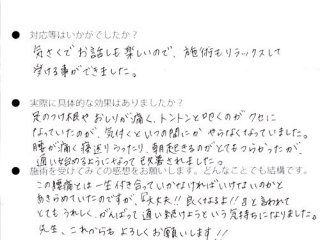 ● 対応等はいかがでしたか?
気さくでお話しも楽しいので、施術もリラックスして
受ける事ができました。
● 実際に具体的な効果はありましたか?
足のつけ根や おしりが痛く、トントンと叩くのが クセに
なっていたのが、気付くといつの間にか やらなくなっていました。
腰が痛く寝返りうったり、朝起きるのがとてもつらかったが、
通い始めるようになって改善されました。
● 施術を受けてみての感想をお願いします。どんなことでも結構です。
この腰痛とは一生付き合っていかなければいけないのかと
あきらめていたのですが、「大丈夫!! 良くなるよ!!」と言われて
とてもうれしく、がんばって通い続けようという気持ちになりました。
先生、これからも よろしくお願いします!!